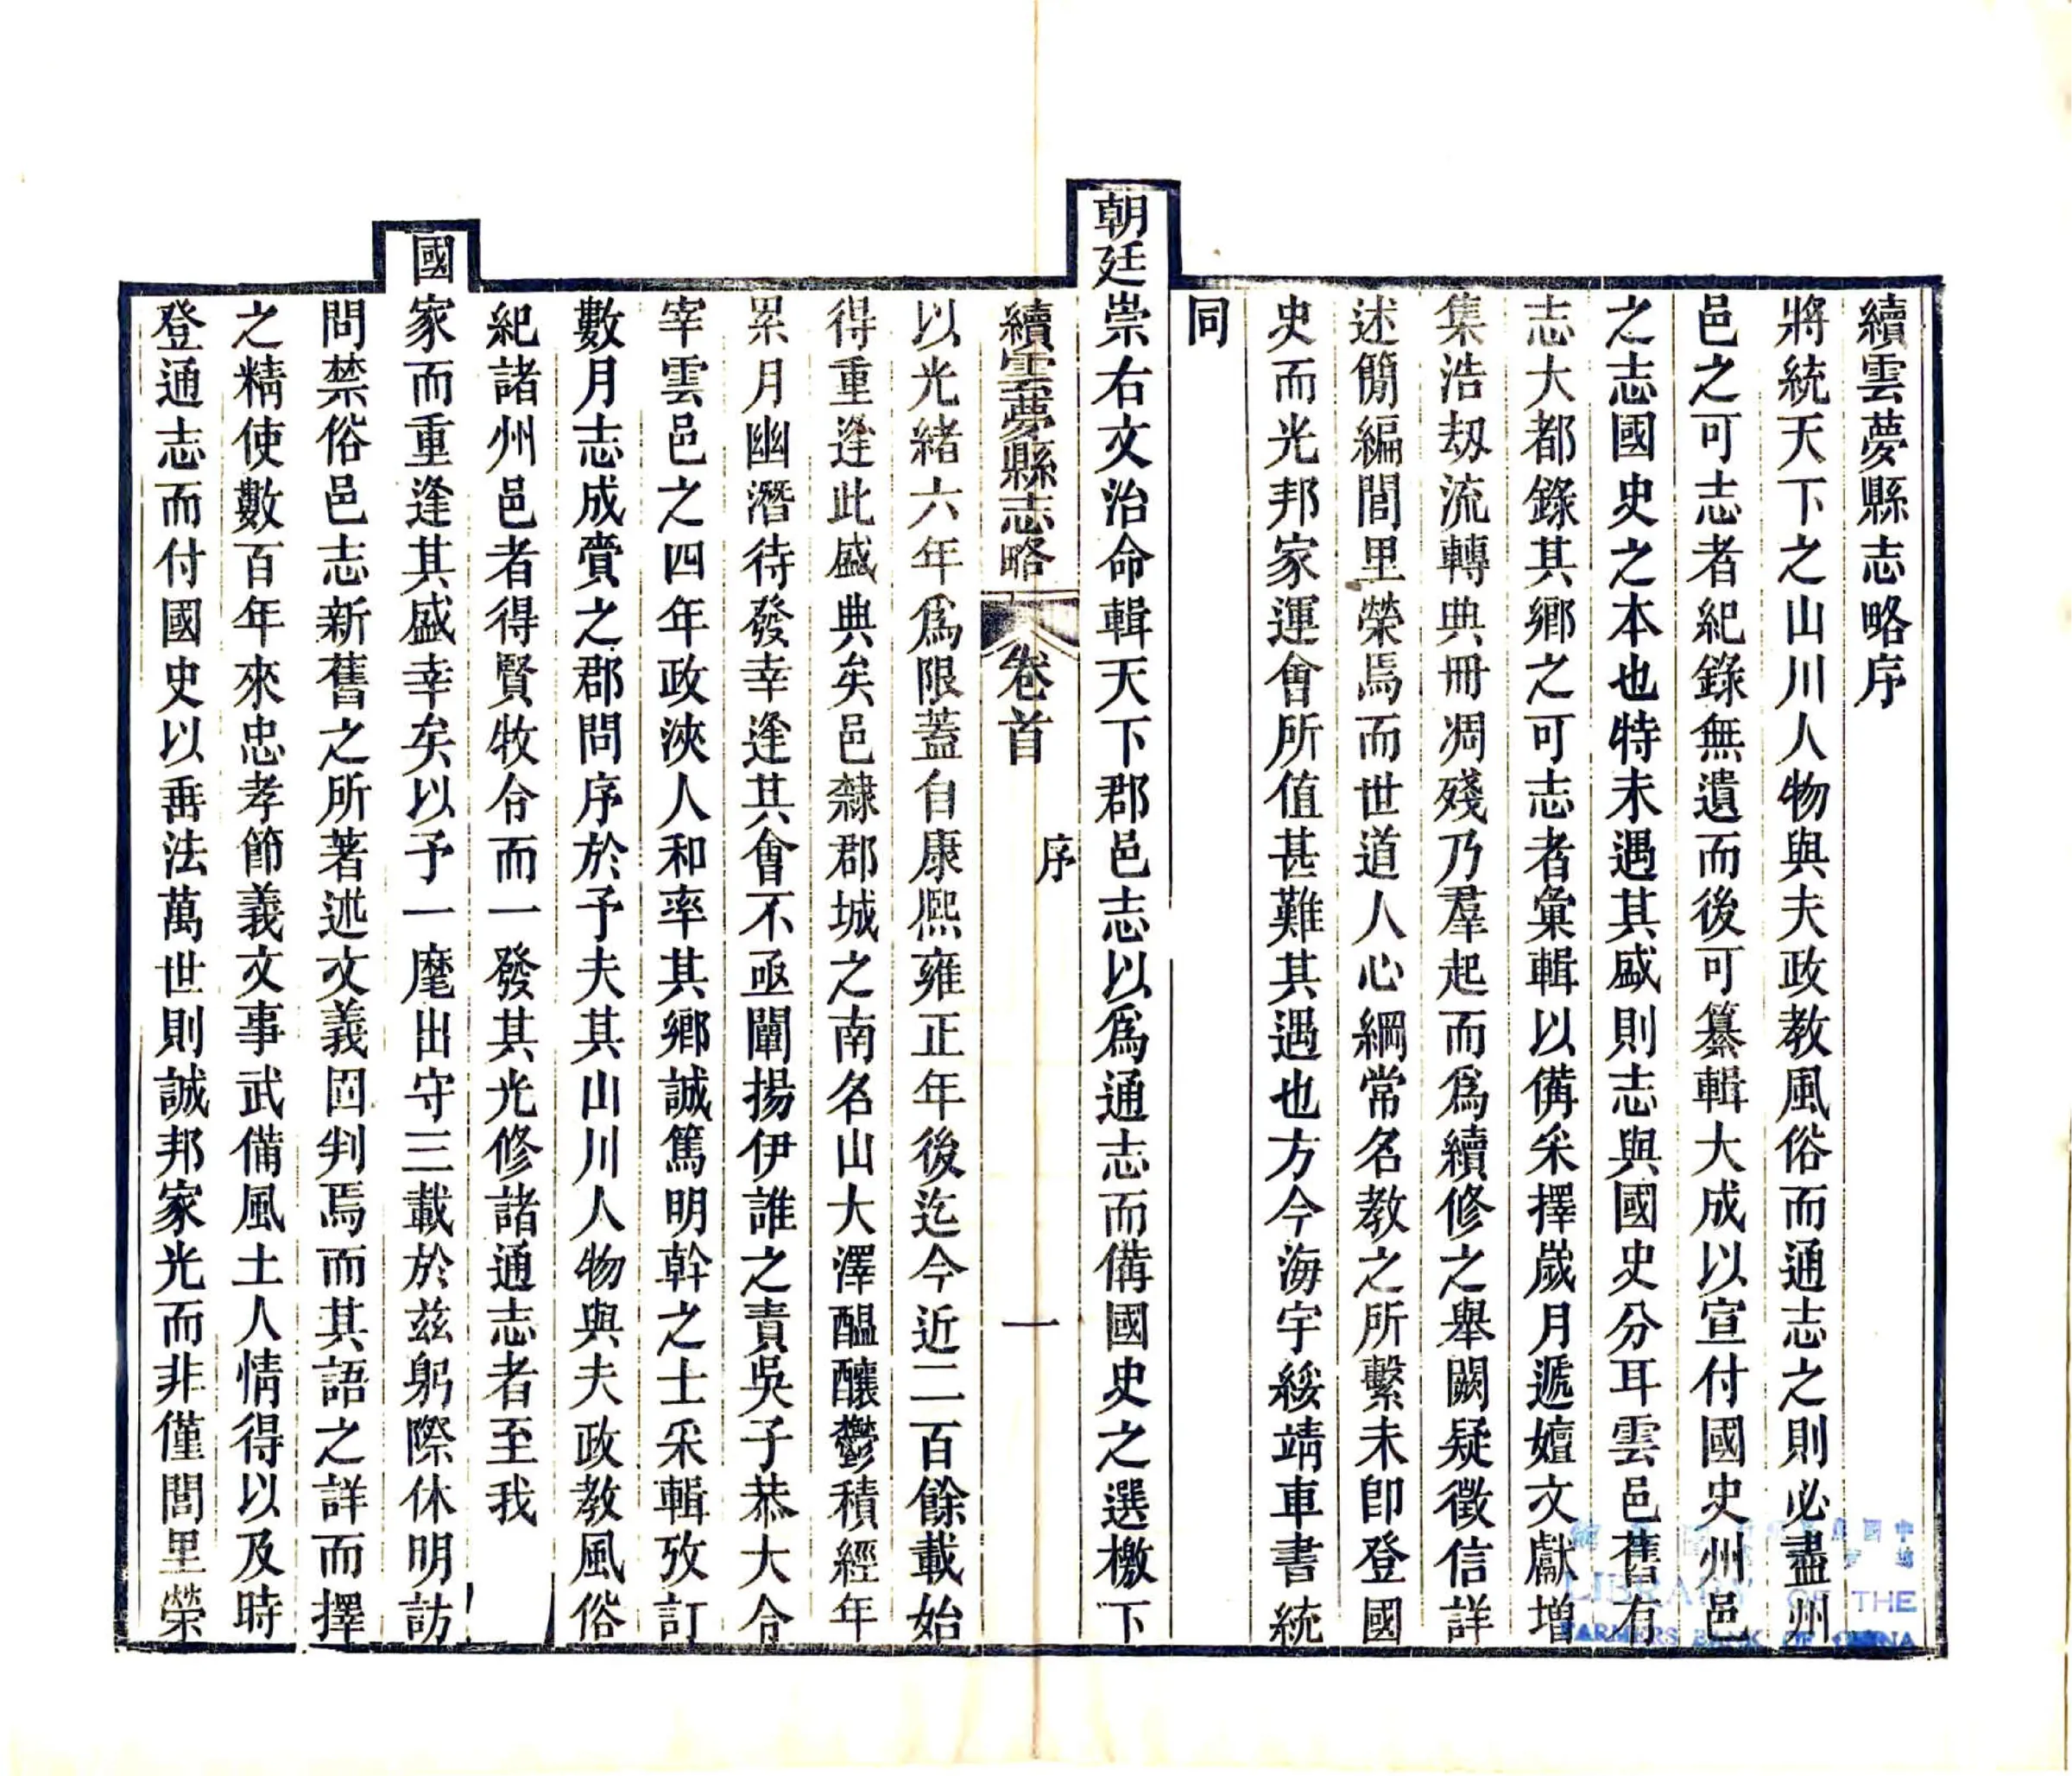 續雲夢縣志略序
將統天下之山川人物與夫政教風俗而通志之則必盡州
邑之可志者紀錄無遺而後可纂輯大成以宣付國史州邑
之志國史之本也特未遇其盛則志與國史分耳雲邑舊有
志大都錄其鄉之可志者彙輯以備采擇歲月遞嬗文獻增
集浩刼流轉典冊凋殘乃羣起而爲續修之舉闕疑徵信詳
述簡編閭里榮焉而世道人心綱常名教之所繫未卽登國
史而光邦家運會所值甚難其遇也方今海宇綏靖車書統
同
朝廷崇右文治命輯天下郡邑志以爲通志而備國史之選檄下
續雲夢縣志略 卷首 序 一
以光緒六年爲限蓋自康熙雍正年後迄今近二百餘載始
得重逢此盛典矣邑隸郡城之南名山大澤醞釀鬱積經年
累月幽潛待發幸逢其會不亟闡揚伊誰之責吳子恭大令
宰雲邑之四年政浹人和率其鄉誠篤明幹之士采輯攷訂
數月志成賷之郡問序於予夫其山川人物與夫政教風俗
紀諸州邑者得賢牧令而一發其光修諸通志者至我
國家而重逢其盛幸矣以予一麾出守三載於茲躬際休明訪
問禁俗邑志新舊之所著述文義回判焉而其語之詳而擇
之精使數百年來忠孝節義文事武備風土人情得以及時
登通志而付國史以垂法萬世則誠邦家光而非僅閭里榮
LIBRARY OF THE
FARMERS BANK OF CHINA